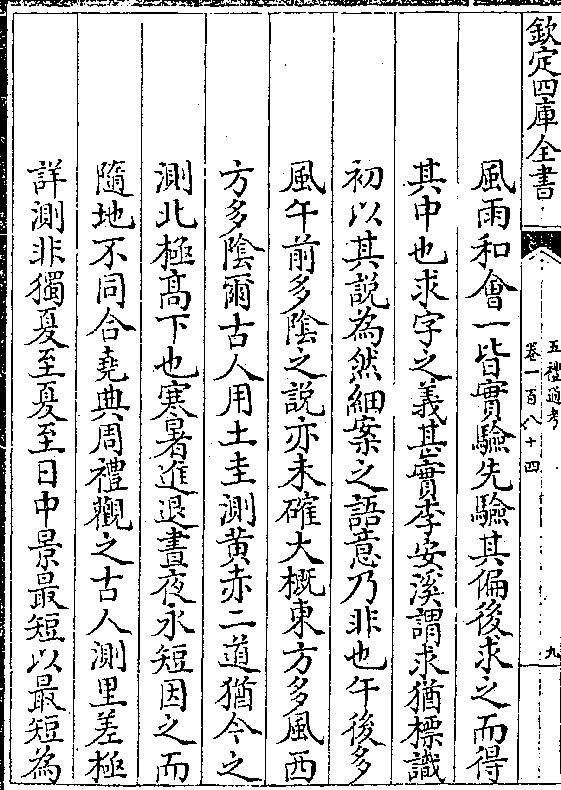 欽定四庫全書
五禮通考
卷一百八十四
九
風雨和會一皆實驗先驗其偏後求之而得
其中也求字之義其實李安溪謂求猶標識
初以其說為然細案之語意乃非也午後多
風午前多陰之說亦未確大概東方多風西
方多陰爾古人用土圭測黄赤二道猶今之
測北極髙下也寒暑進退晝夜永短因之而
隨地不同合堯典周禮觀之古人測里差極
詳測非獨夏至夏至日中景最短以最短為